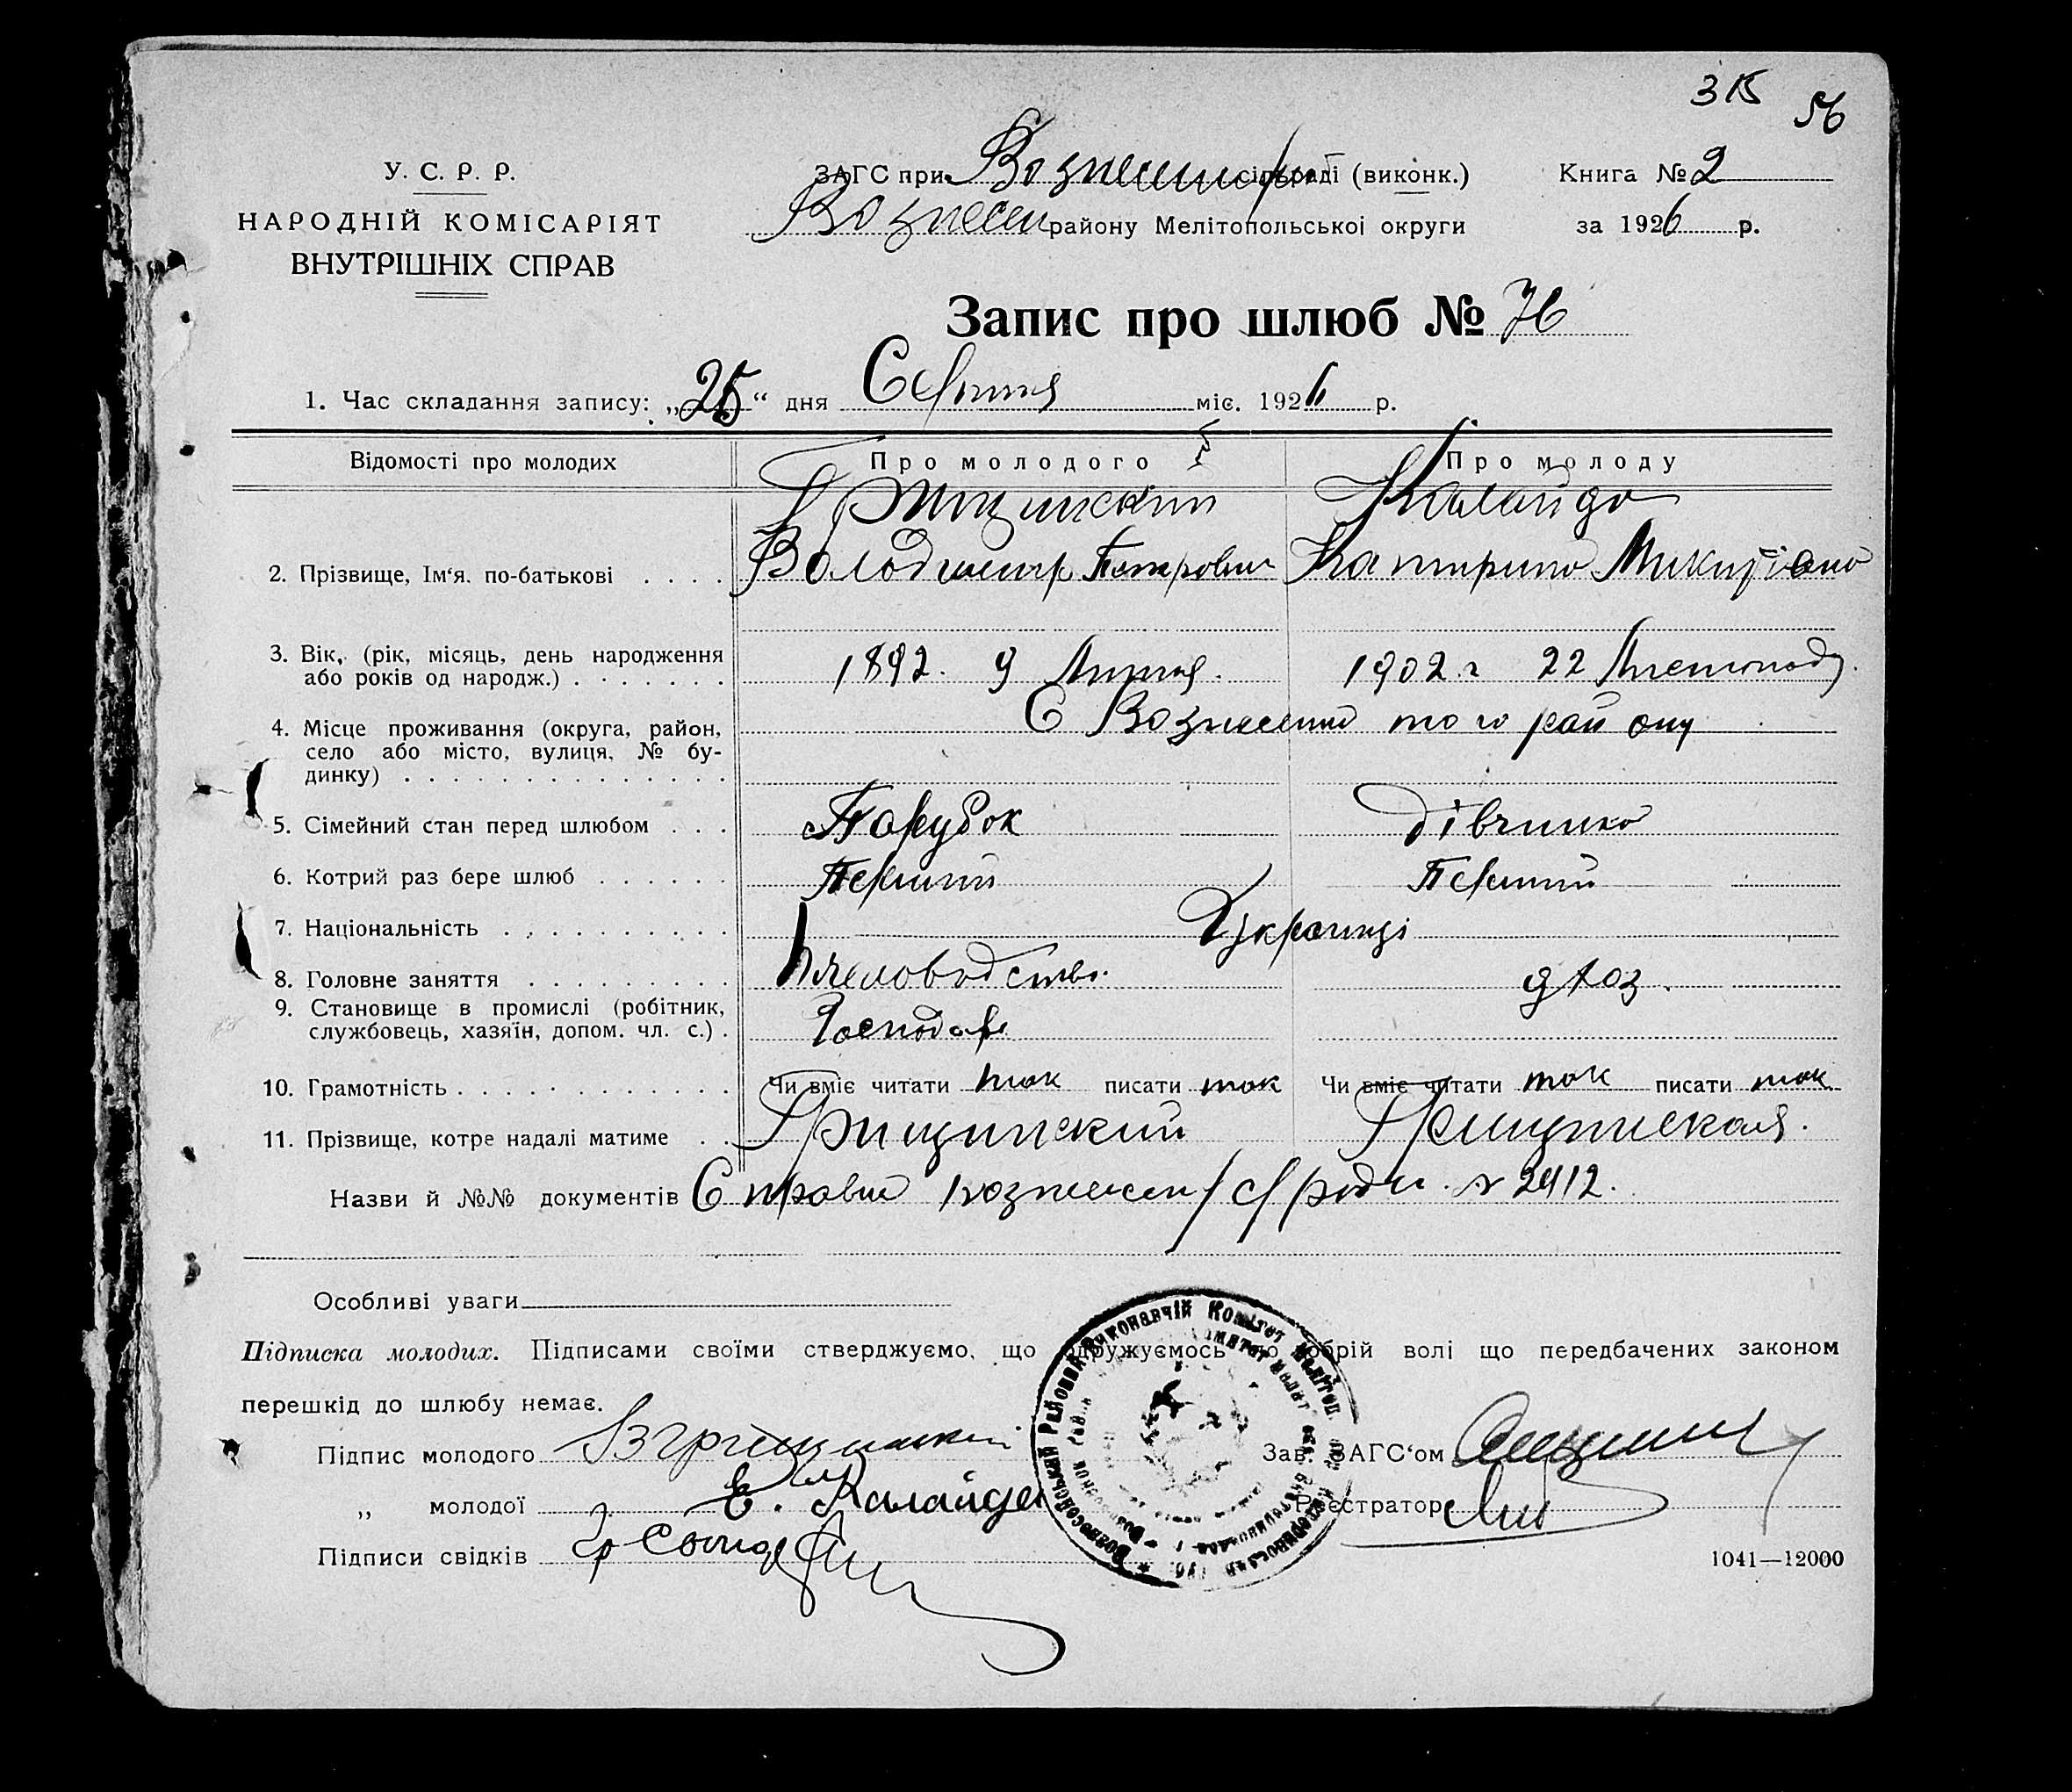 315 56
У. С. Р. Р.
НАРОДНІЙ КОМІСАРІЯТ
ВНУТРІШНІХ СПРАВ
ЗАГС при сільраді (виконк.)
Вознесен району Мелітопольської округи
Книга № 2
за 1926 р.
Запис про шлюб № 76
1. Час складання запису: „25“ дня Серпня міс. 1926 р.
Відомості про молодих Про молодого Про молоду
Грищинский Калайда
2. Прізвище, Ім‘я. по-батькові . . . . Володимир Петрович Катирина Микитівна
3. Вік, (рік, місяць, день народження 1892. 9 Липня. 1902 г 22 Листопада.
або років од народж.) . . . . . . .
4. Місце проживання (округа, район, С Вознесенка того району
село або місто, вулиця, № бу-
динку) . . . . . . . . . . . . . .
5. Сімейний стан перед шлюбом . . . Парубок Дівчина
6. Котрий раз бере шлюб . . . . . . Перший Перший
7. Національність . . . . . . . . . . Українці
8. Головне заняття . . . . . . . . . Пчеловодство. д/хоз.
9. Становище в промислі (робітник,
службовець, хазяїн, допом. чл. с.) . Господарь
10. Грамотність . . . . . . . . . . . . Чи вміє читати так писати так Чи вміє читати так писати так
11. Прізвище, котре надалі матиме . . Грищинский Грищинская.
Назви й №№ документів Справка Вознесен/с/ради. № 2412.
Особливі уваги
Підписка молодих. Підписами своїми стверджуємо, що одружуємось по добрій волі що передбачених законом
перешкід до шлюбу немає.
Підпис молодого В Грищинский Зав. ЗАГС‘ом
„ молодої Е. Калайда Реєстратор
Підписи свідків
Вознесенський Районний Виконавчій Комітет Меліто
1041—12000